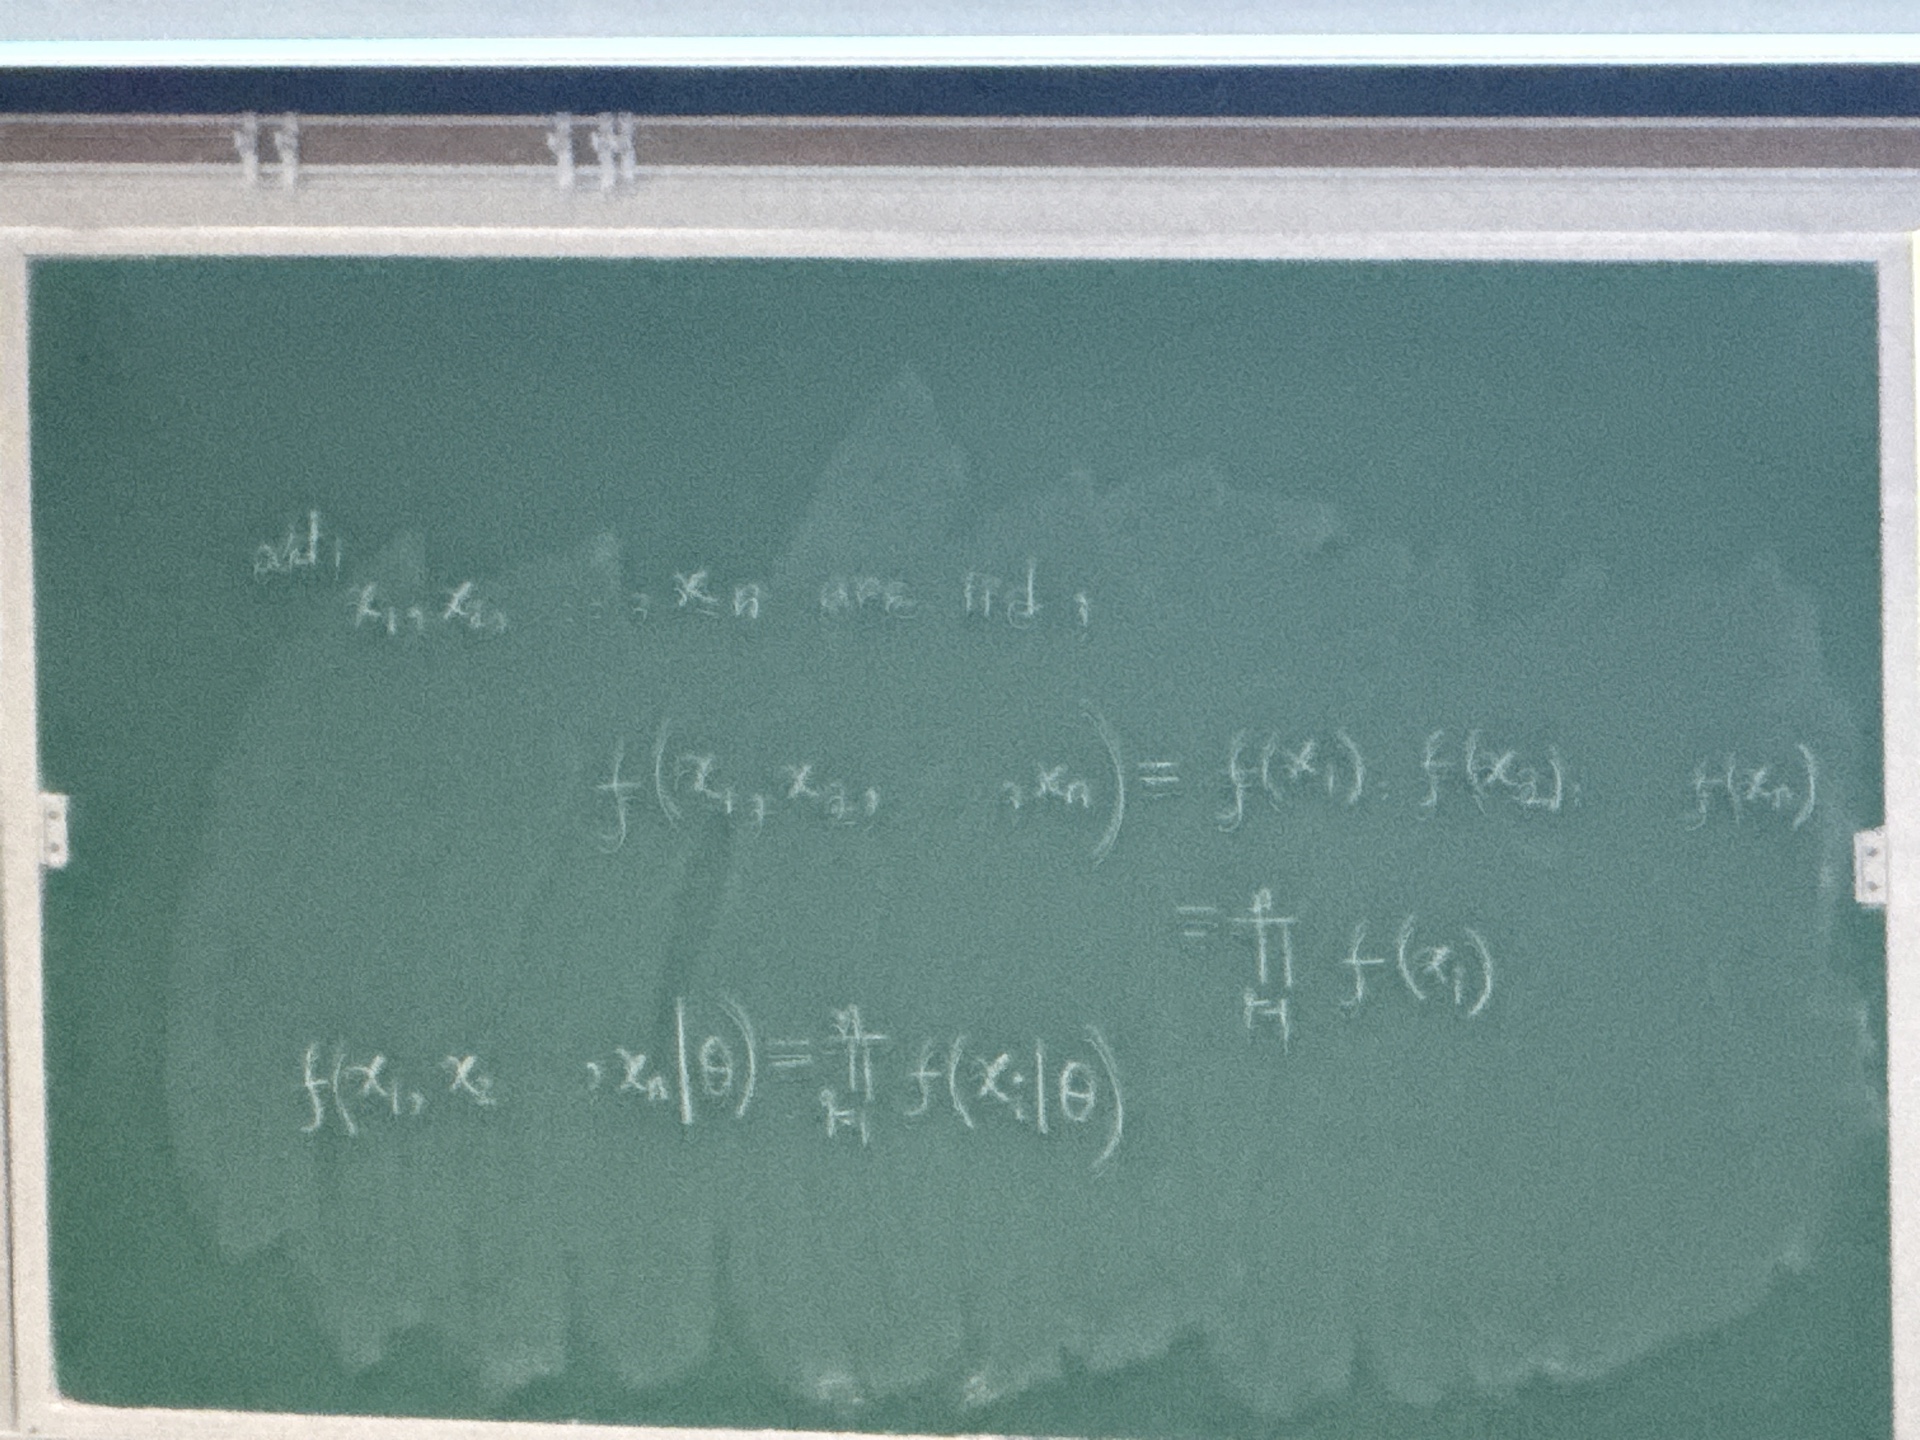 x₁, x₂, ..., xₙ are iid,
f(x₁, x₂, , xₙ) = f(x₁). f(x₂). f(xₙ)
= ∏ⁿᵢ₌₁ f(xᵢ)
f(x₁, x₂ , xₙ|θ) = ∏ⁿᵢ₌₁ f(xᵢ|θ)